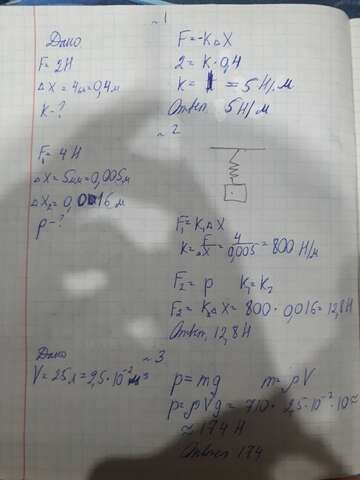 ~1
Дано
F=2Н
ΔX=4м=0,4м
K-?
F=-KΔX
2=K·0,4
K= = 5Н/м
Ответ 5Н/м
~2
F₁=4Н
ΔX=5мм=0,005м
ΔX₂=0,016м
P-?
F₁=K₁ΔX
K=F/ΔX=4/0,005=800Н/м
F₂=P K₁=K₂
F₂=K₂ΔX=800·0,016=12,8Н
Ответ, 12,8Н
~3
Дано
V=25л=2,5·10⁻²м³
p=mg m=ρV
p=ρVg=710·2,5·10⁻²·10≈
≈174Н
Ответ 174